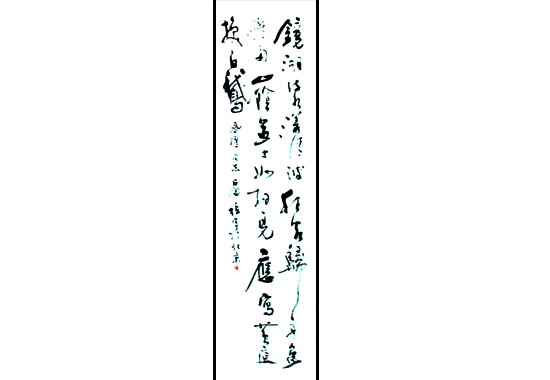 鏡湖流水漾清波狂客歸舟逸
興多山陰道士如相見應寫黃庭
換白鵝